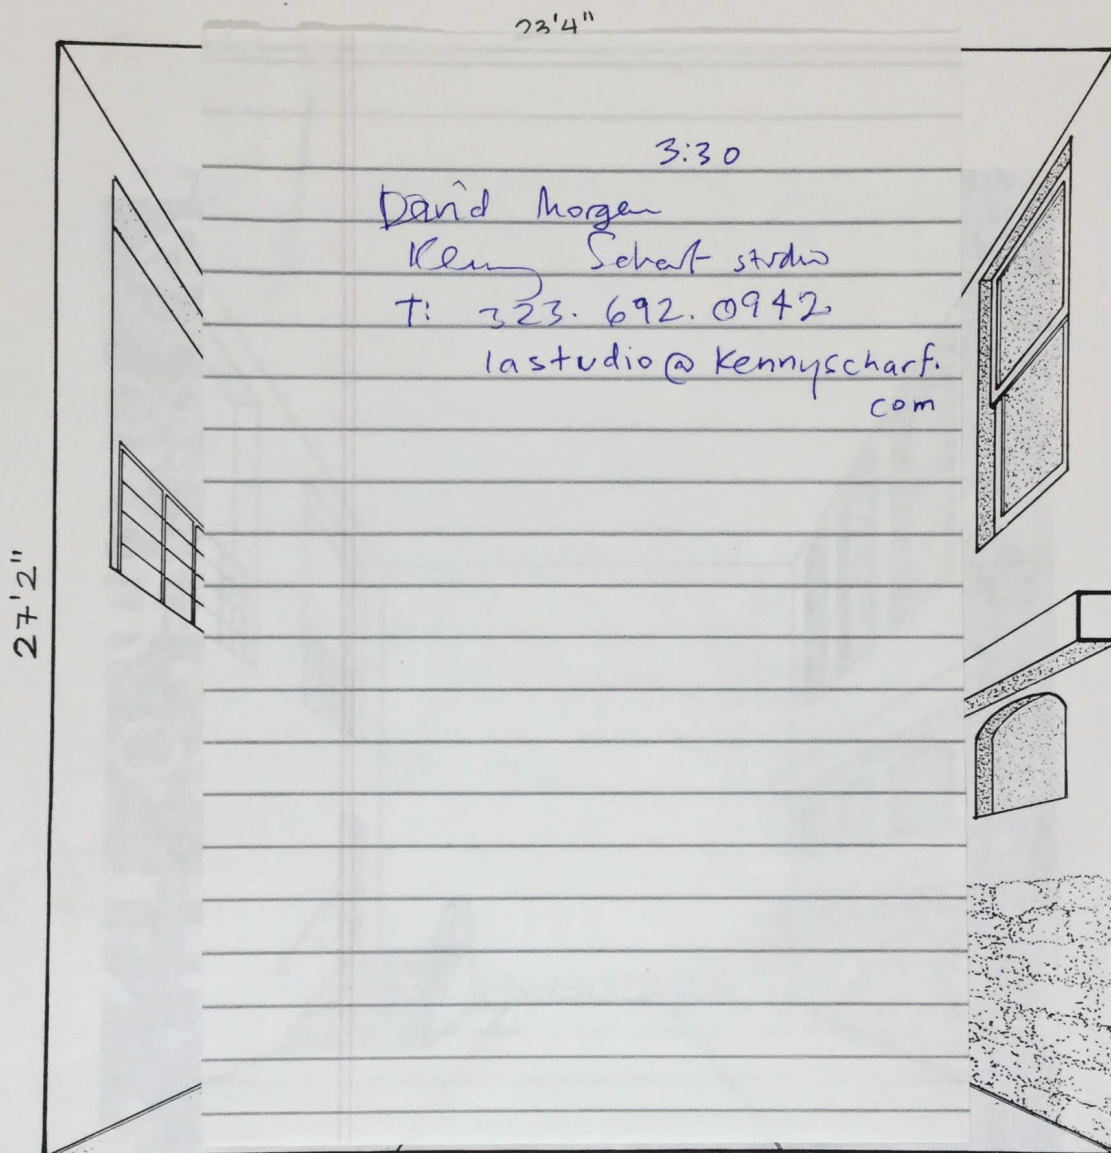 23'4"
3:30
David Morgan
Kenny Scharf studio
T: 323. 692. 0942
lastudio@kennyscharf.
com
27'2"